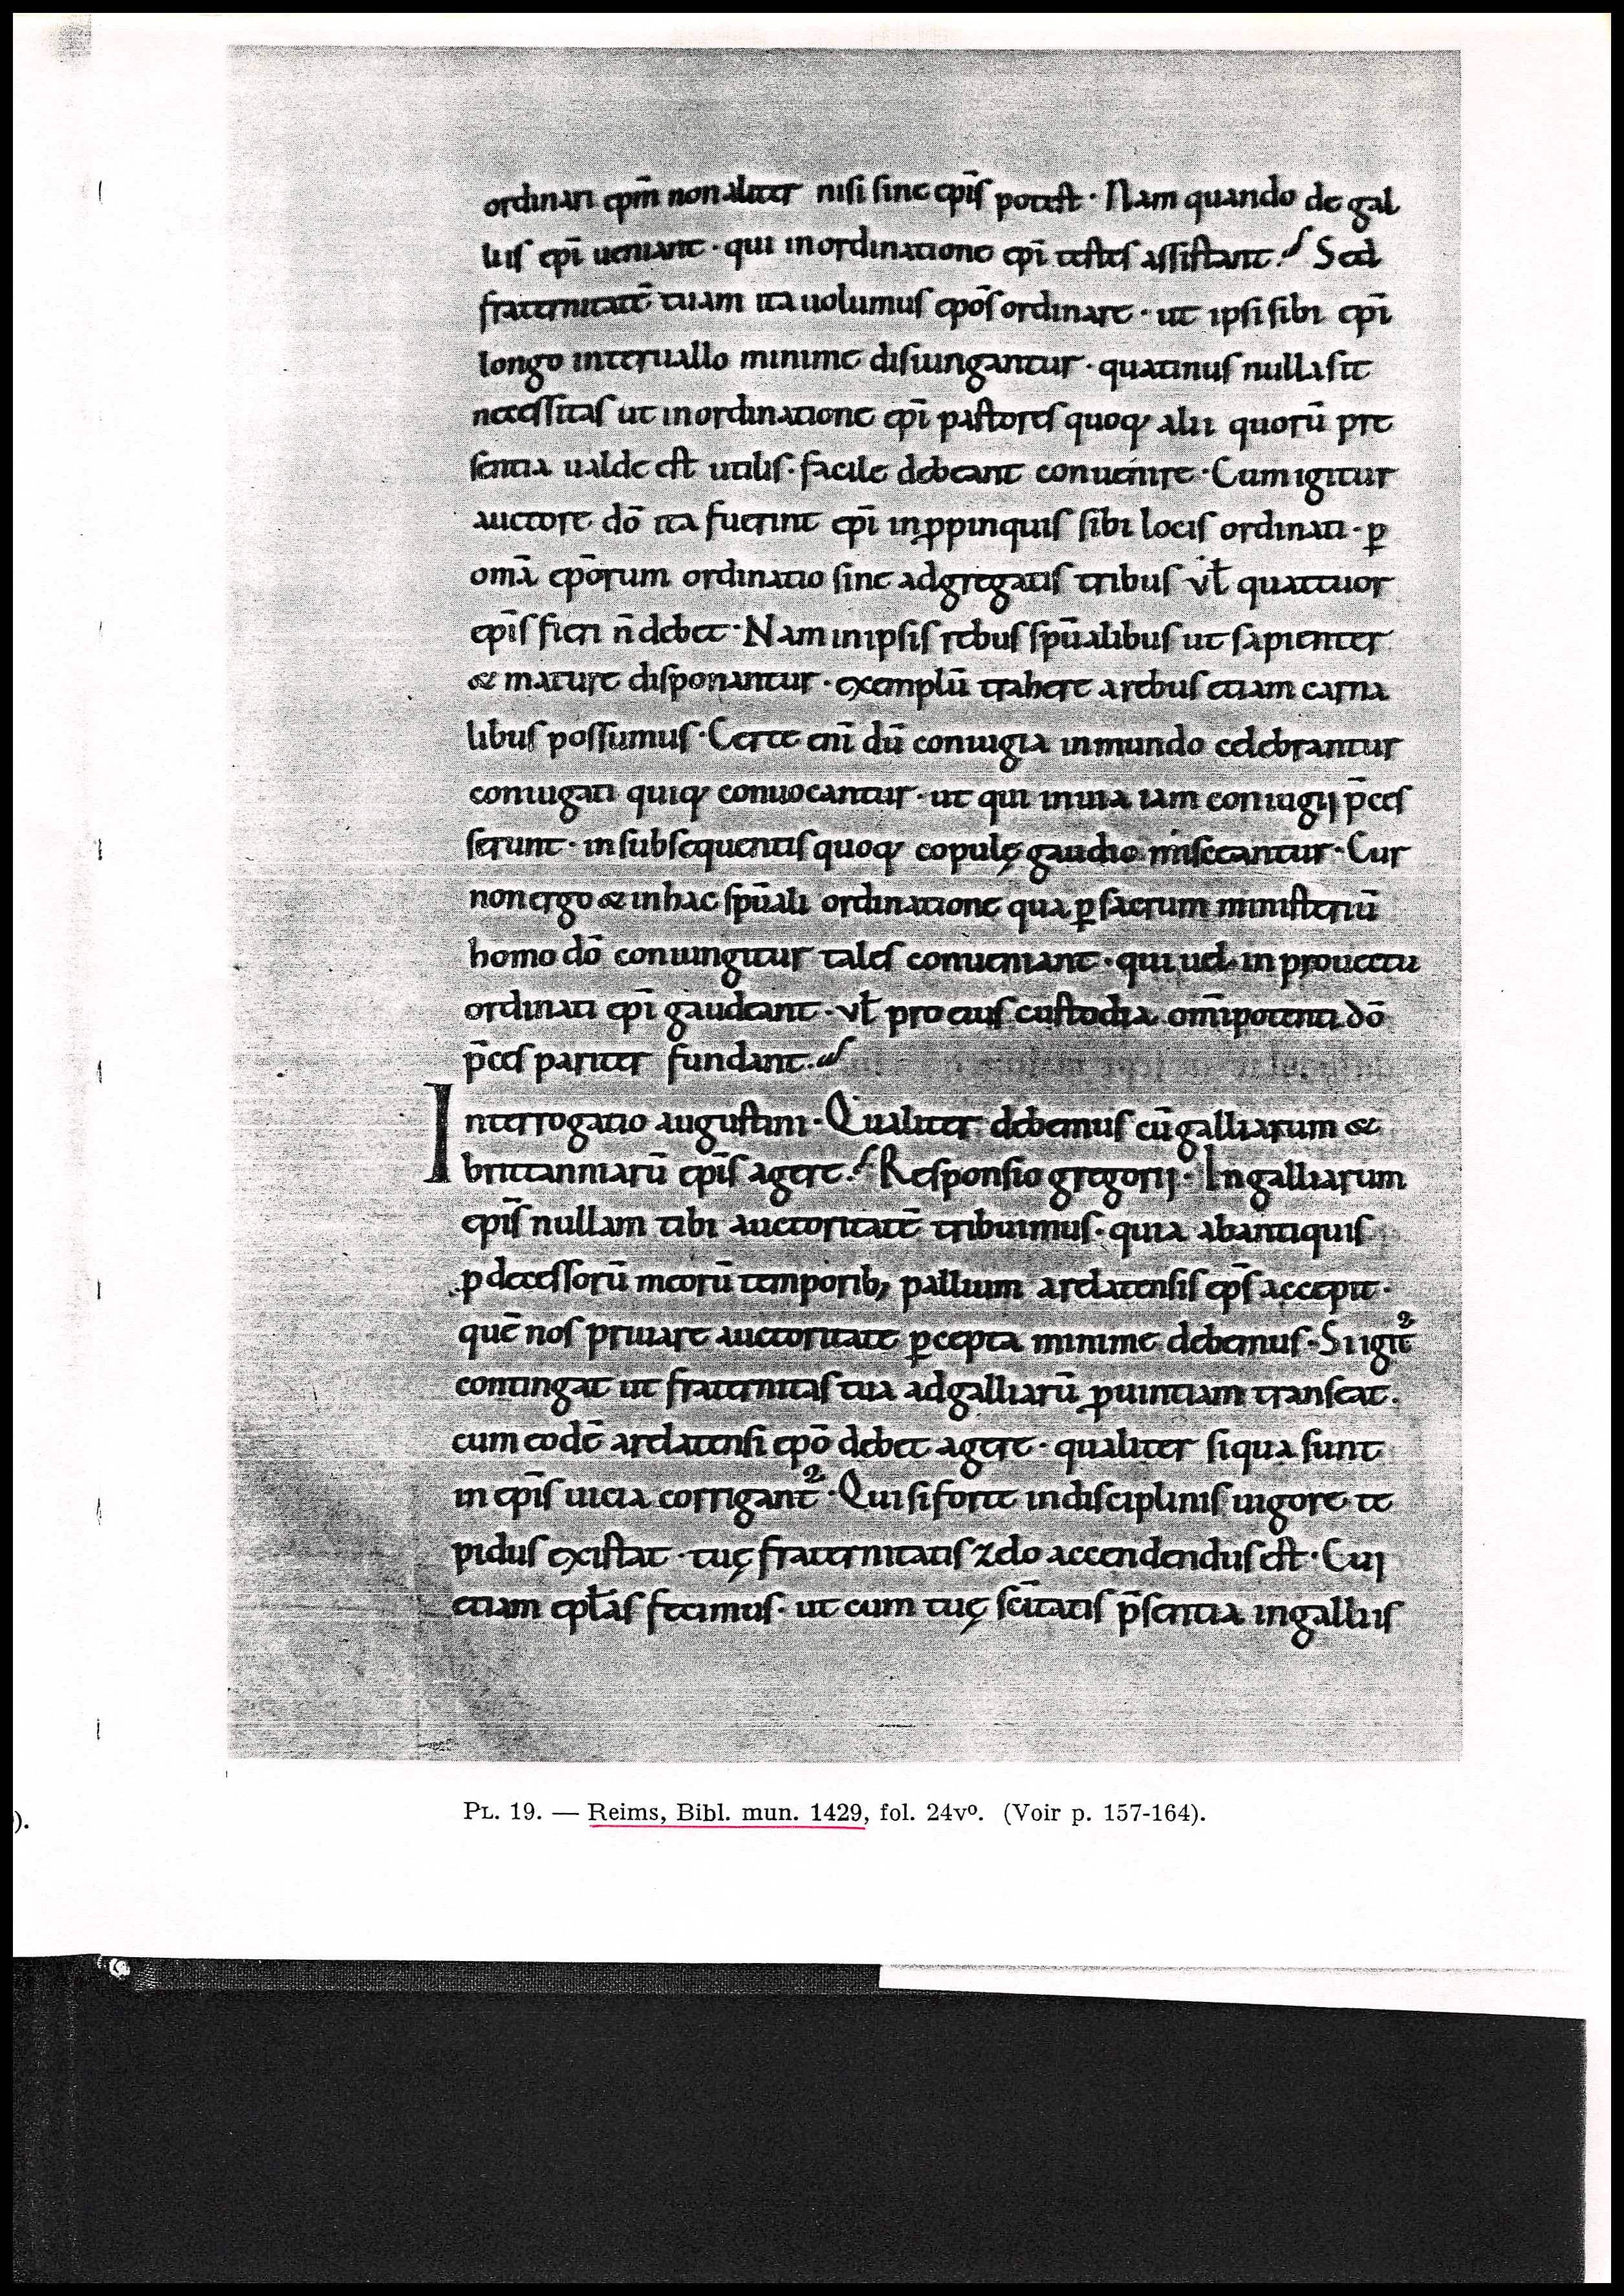 ordinari epm̄ non aliter nisi sine ep̄is potest · Nam quando de gal
liis ep̄i ueniant · qui in ordinatione ep̄i testes assistant? Sed
fraternitatē tuam ita uolumus ep̄os ordinare · ut ipsi sibi ep̄i
longo interuallo minime disiungantur · quatinus nulla sit
necessitas ut in ordinatione ep̄i pastores quoq; alii quorū pre
sentia ualde est utilis · facile debeant conuenire · Cum igitur
auctore dō ita fuerint ep̄i in ꝓpinquis sibi locis ordinati · ꝑ
om̄a ep̄orum ordinatio sine adgregatis tribus vł quattuor
ep̄is fieri n̄ debet · Nam in ipsis rebus sp̄ualibus ut sapienter
& mature disponantur · exemplū trahere a rebus etiam carna
libus possumus · Certe eni̅ dū coniugia in mundo celebrantur
coniugati quiq; conuocantur · ut qui in uia iam coniugij p̄ces
serunt · in subsequentis quoq; copulę gaudio misceantur · Cur
non ergo & in hac sp̄uali ordinatione qua ꝑ sacrum ministeriū
homo dō coniungitur tales conueniant · qui uel in prouectu
ordinati ep̄i gaudeant · vł pro eius custodia om̄ipotenti dō
p̄ces pariter fundant .
Interrogatio augustini · Qualiter debemus cū galliarum &
brittanniarū ep̄is agere? Responsio gregorij · In galliarum
ep̄is nullam tibi auctoritatē tribuimus · quia ab antiquis
p̄decessorū meorū temporib; pallium arelatensis ep̄s accepit ·
quē nos priuare auctoritate ꝑcepta minime debemus · Si igit᷑
contingat ut fraternitas tua ad galliarū ꝓuintiam transeat .
cum eodē arelatensi ep̄o debet agere · qualiter si qua sunt
in ep̄is uicia corrigant᷑ · Qui si forte in disciplinis uigore te
pidus existat · tuę fraternitatis zelo accendendus est · Cui
etiam epłas fecimus · ut cum tuę sc̄itatis p̄sentia in galliis
PL. 19. — Reims, Bibl. mun. 1429, fol. 24vº. (Voir p. 157-164).
).